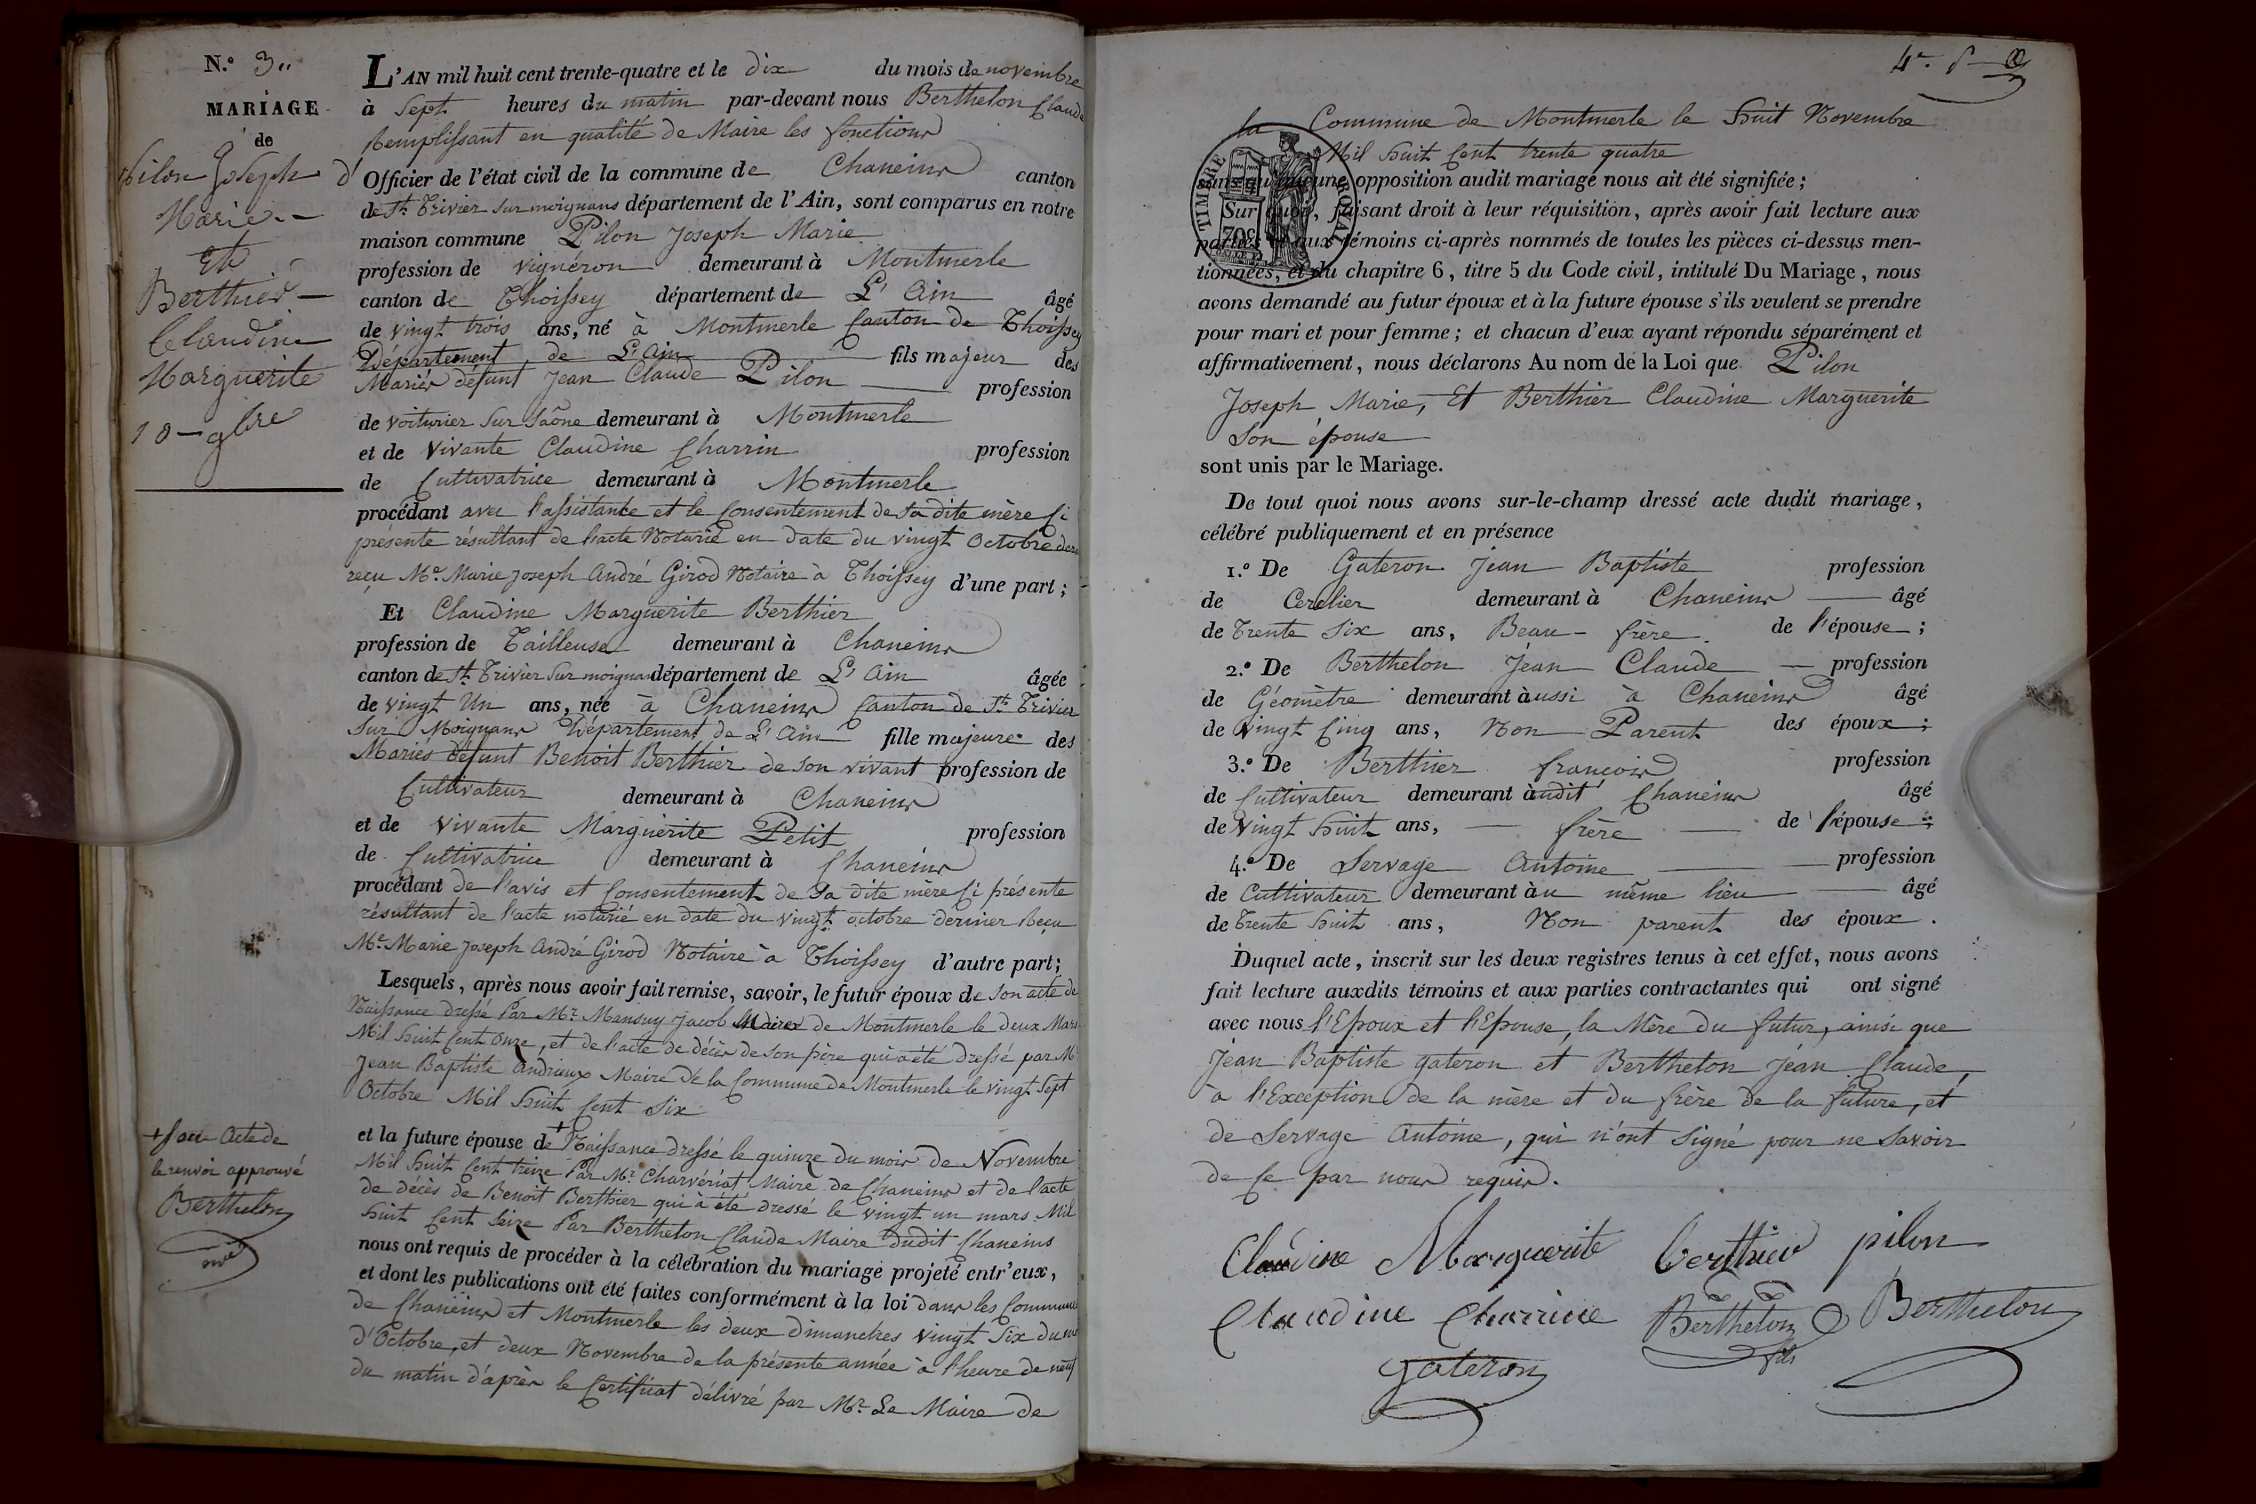 N.º 3"
MARIAGE
de
Pilon Joseph
Marie
Et
Berthier
Claudine
Marguerite
10 9bre
L'AN mil huit cent trente-quatre et le dix du mois de novembre
à Sept heures du matin par-devant nous Berthelon Claude
Remplissant en qualité de Maire les fonctions d'
Officier de l'état civil de la commune de Chaneins canton
de St. Trivier sur moignans département de l'Ain, sont comparus en notre
maison commune Pilon Joseph Marie
profession de vignéron demeurant à Montmerle
canton de Thoissey département de L'Ain âgé
de vingt trois ans, né à Montmerle Canton de Thoissey
Département de L'Ain fils majeur des
Mariés défunt Jean Claude Pilon profession
de voiturier sur Saône demeurant à Montmerle
et de vivante Claudine Charrin profession
de Cultivatrice demeurant à Montmerle
procédant avec l'assistance et le Consentement de sa dite mère Ci
présente résultant de l'acte Notarié en date du vingt Octobre dern
reçu Me. Marie Joseph André Girod Notaire à Thoissey d'une part;
Et Claudine Marguerite Berthier
profession de Tailleuse demeurant à Chaneins
canton de St. Trivier sur moignans département de L'Ain âgée
de vingt Un ans, née à Chaneins Canton de St. Trivier
Sur Moignans Département de L'Ain fille majeure des
Mariés défunt Benoit Berthier de son vivant profession de
Cultivateur demeurant à Chaneins
et de vivante Marguerite Petit profession
de Cultivatrice demeurant à Chaneins
procédant de l'avis et Consentement de Sa dite mère Ci présente
résultant de l'acte notarié en date du vingt octobre dernier Reçu
Me. Marie Joseph André Girod Notaire à Thoissey d'autre part;
Lesquels, après nous avoir fait remise, savoir, le futur époux de son acte de
Naissance dressé Par Mr. Mansuy Jacob Maire de Montmerle le deux Mars
Mil huit Cent Onze, et de l'acte de décès de son père qui a été dressé par Mr
Jean Baptiste Andrieux Maire de la Commune de Montmerle le vingt Sept
Octobre Mil huit Cent Six
et la future épouse de + Naissance dressé le quinze du mois de Novembre
Mil huit Cent treize Par Mr. Charvériat Maire de Chaneins et de l'acte
de décès de Benoit Berthier qui à été dressé le vingt un mars Mil
huit Cent Seize Par Berthelon Claude Maire dudit Chaneins
nous ont requis de procéder à la célébration du mariage projeté entr'eux,
et dont les publications ont été faites conformément à la loi dans les Communes
de Chaneins et Montmerle les deux Dimanches vingt Six du
d'Octobre, et deux Novembre de la présente année à l'heure de neuf
du matin d'après le Certificat délivré par Mr. Le Maire de
+ son Acte de
le renvoi approuvé
Berthelon
la Commune de Montmerle le huit Novembre
Mil huit Cent trente quatre
TIMBRE ROYAL
70c
sans qu'aucune opposition audit mariage nous ait été signifiée;
Sur quoi, faisant droit à leur réquisition, après avoir fait lecture aux
parties et aux témoins ci-après nommés de toutes les pièces ci-dessus men-
tionnées, et du chapitre 6, titre 5 du Code civil, intitulé Du Mariage, nous
avons demandé au futur époux et à la future épouse s'ils veulent se prendre
pour mari et pour femme; et chacun d'eux ayant répondu séparément et
affirmativement, nous déclarons Au nom de la Loi que Pilon
Joseph Marie, Et Berthier Claudine Marguerite
Son épouse
sont unis par le Mariage.
De tout quoi nous avons sur-le-champ dressé acte dudit mariage,
célébré publiquement et en présence
1.º De Gateron Jean Baptiste profession
de Cerclier demeurant à Chaneins âgé
de Trente Six ans, Beau-frère de l'épouse;
2.º De Berthelon Jean Claude profession
de Géomètre demeurant àussi à Chaneins âgé
de Vingt Cinq ans, Non Parent des époux;
3.º De Berthier françois profession
de Cultivateur demeurant àudit Chaneins âgé
de Vingt huit ans, frère de l'épouse;
4.º De Servage Antoine profession
de Cultivateur demeurant àu même lieu âgé
de Trente huit ans, Non parent des époux.
Duquel acte, inscrit sur les deux registres tenus à cet effet, nous avons
fait lecture auxdits témoins et aux parties contractantes qui ont signé
avec nous l'Epoux et l'Epouse, la Mère du futur, ainsi que
Jean Baptiste gateron et Berthelon Jean Claude,
à l'Exception de la mère et du frère de la future, et
de Servage Antoine, qui n'ont signé pour ne savoir
de Ce par nous requis.
Claudine Marguerite berthier pilon
Claudine Charrine Berthelon fils Berthelon
gateron